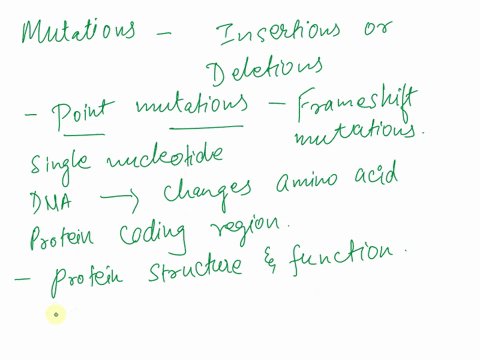 Mutations - Insertions or
Deletions
- Point mutations - Frameshift
mutations.
Single nucleotide
DNA → changes amino acid
Protein coding region.
- Protein structure & function.